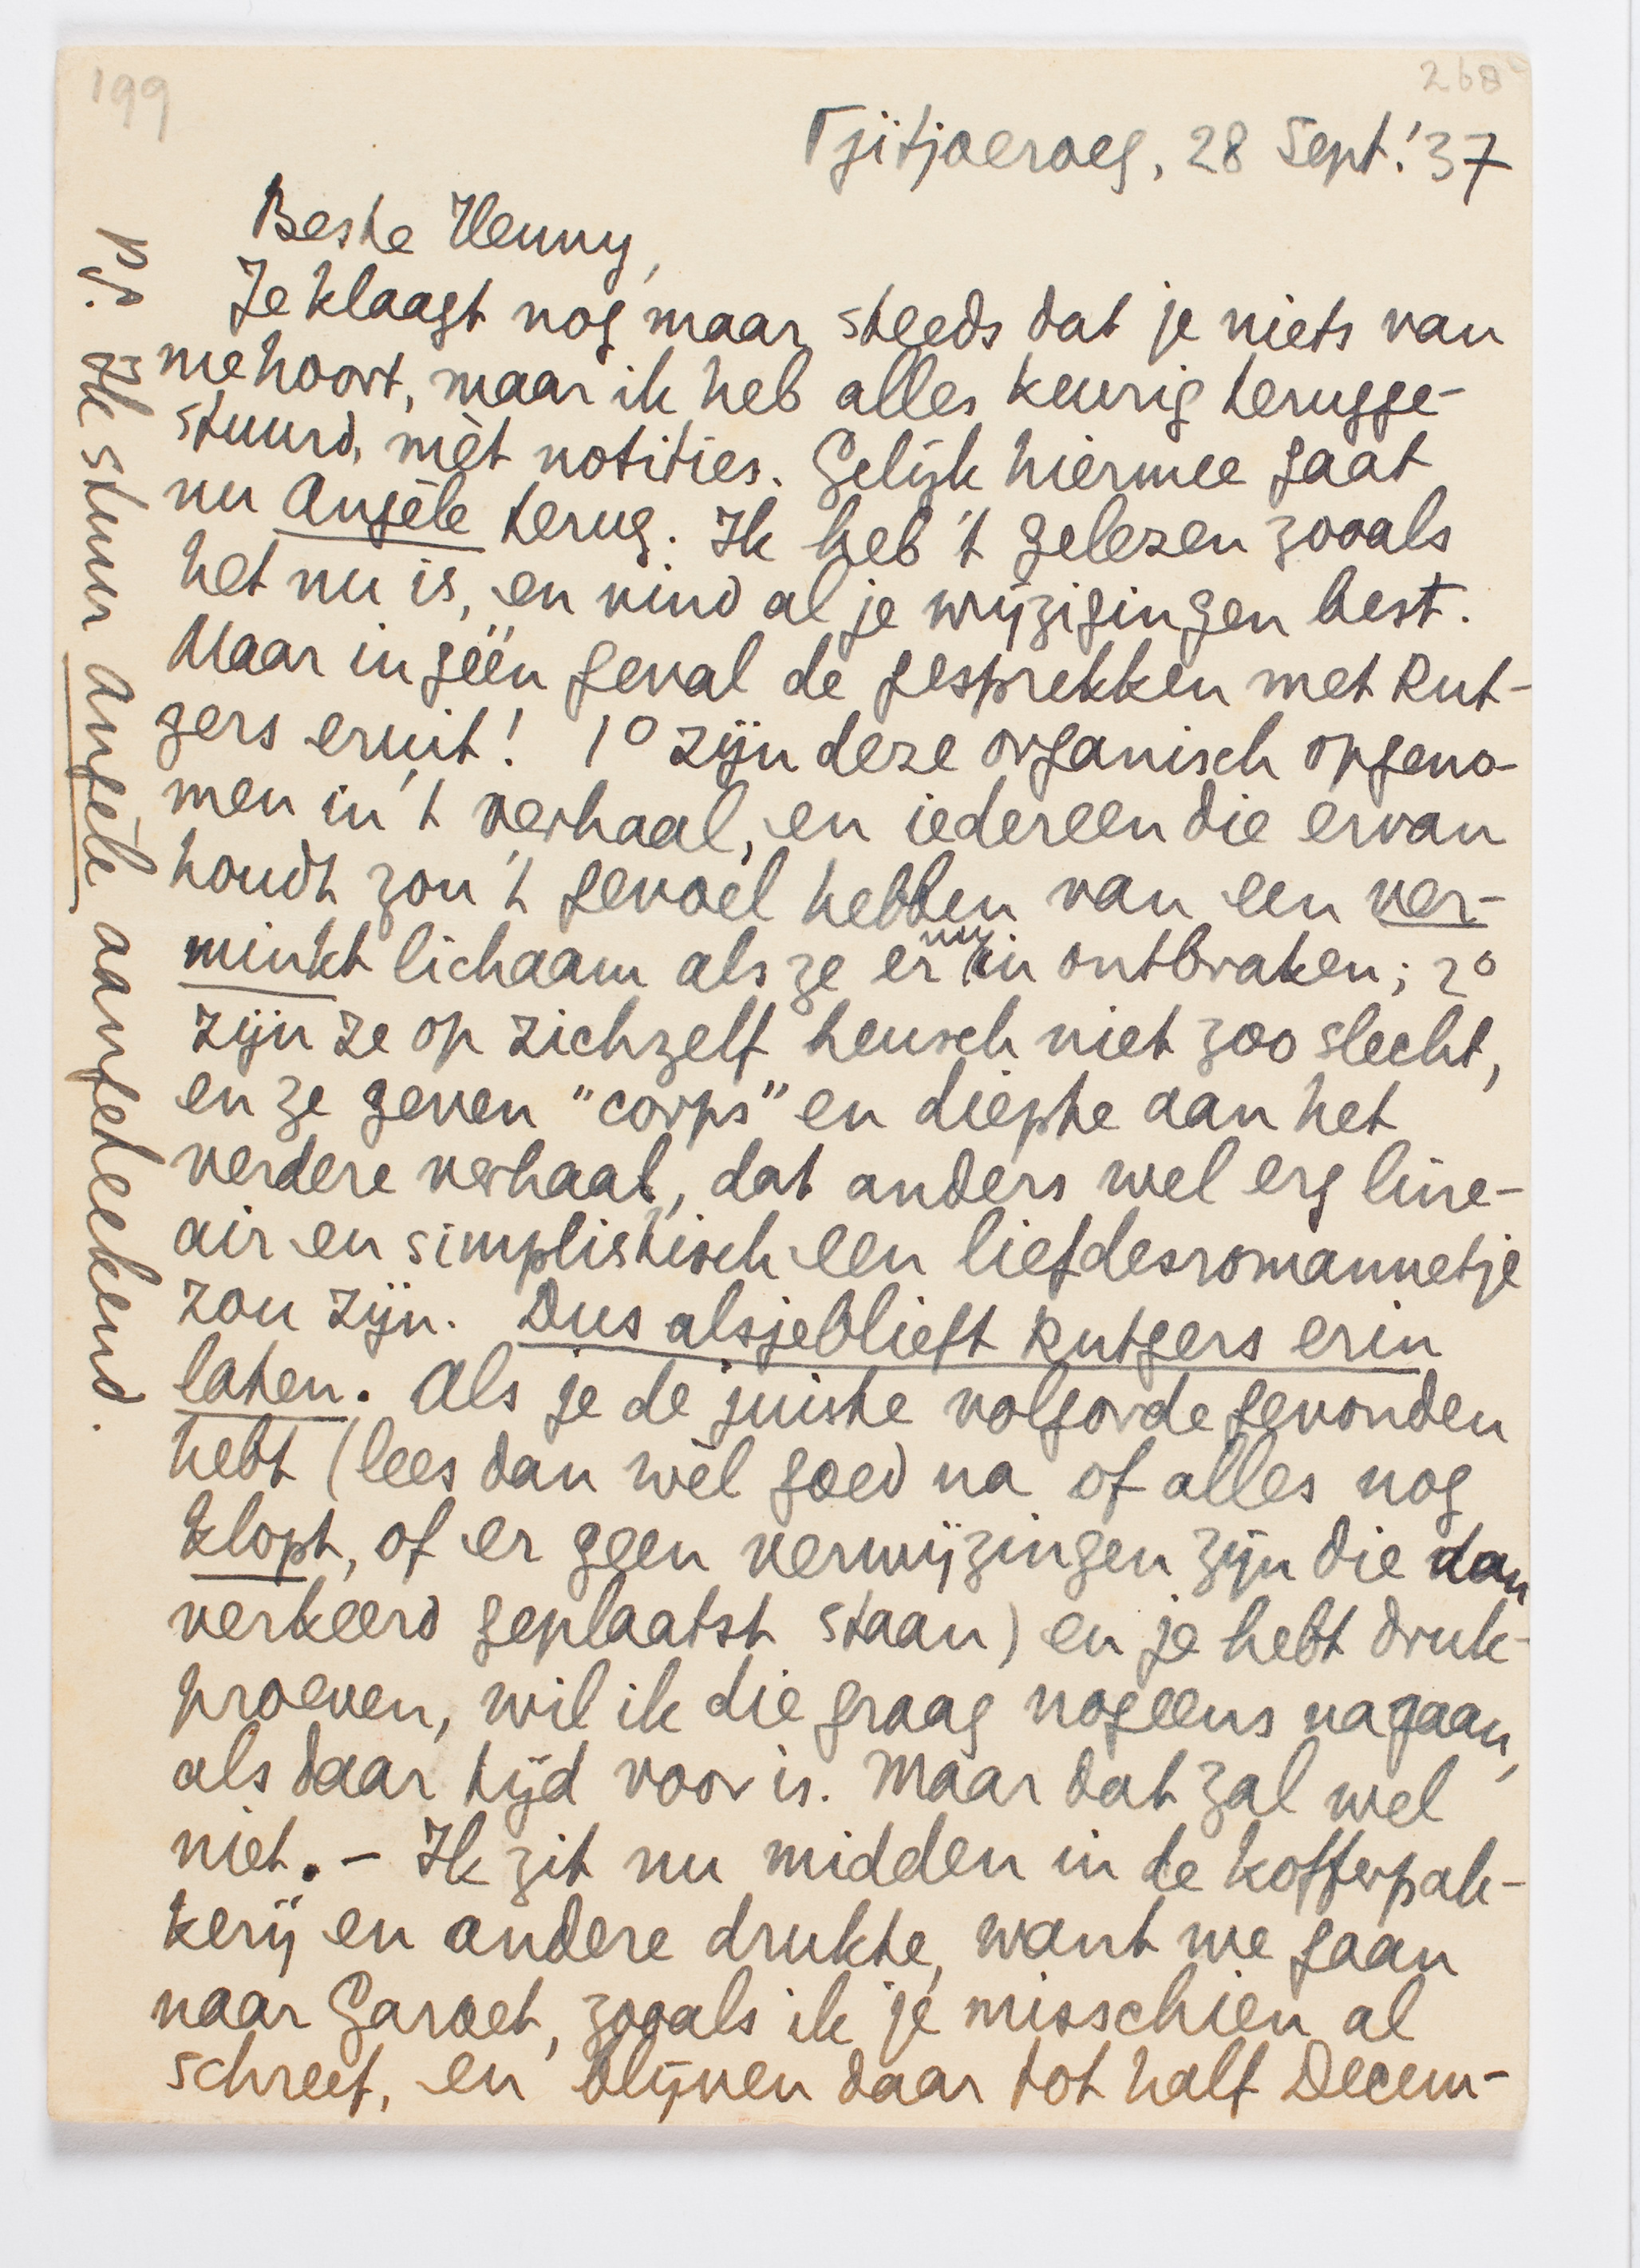 199
268
Tjitjoeroeg, 28 Sept. '37
Beste Henny,
Je klaagt nog maar steeds dat je niets van
me hoort, maar ik heb alles keurig terugge-
stuurd, mèt notities. Gelijk hiermee gaat
nu Angèle terug. Ik heb 't gelezen zooals
het nu is, en vind al je wijzigingen best.
Maar in géén geval de gesprekken met Rut-
gers eruit! 1º zijn deze organisch opgeno-
men in 't verhaal, en iedereen die ervan
houdt zou 't gevoel hebben van een ver-
minkt lichaam als ze er nu in ontbraken; 2º
zijn ze op zichzelf heusch niet zoo slecht,
en ze geven "corps" en diepte aan het
verdere verhaal, dat anders wel erg line-
air en simplistisch een liefdesromannetje
zou zijn. Dus alsjeblieft Rutgers erin
laten. Als je de juiste volgorde gevonden
hebt (lees dan wèl goed na of alles nog
klopt, of er geen verwijzingen zijn die dan
verkeerd geplaatst staan) en je hebt druk-
proeven, wil ik die graag nogeens nagaan,
als daar tijd voor is. Maar dat zal wel
niet. – Ik zit nu midden in de kofferpak-
kerij en andere drukte, want we gaan
naar Garoet, zooals ik je misschien al
schreef, en blijven daar tot half Decem-
P.S. Ik stuur Angèle aangeteekend.